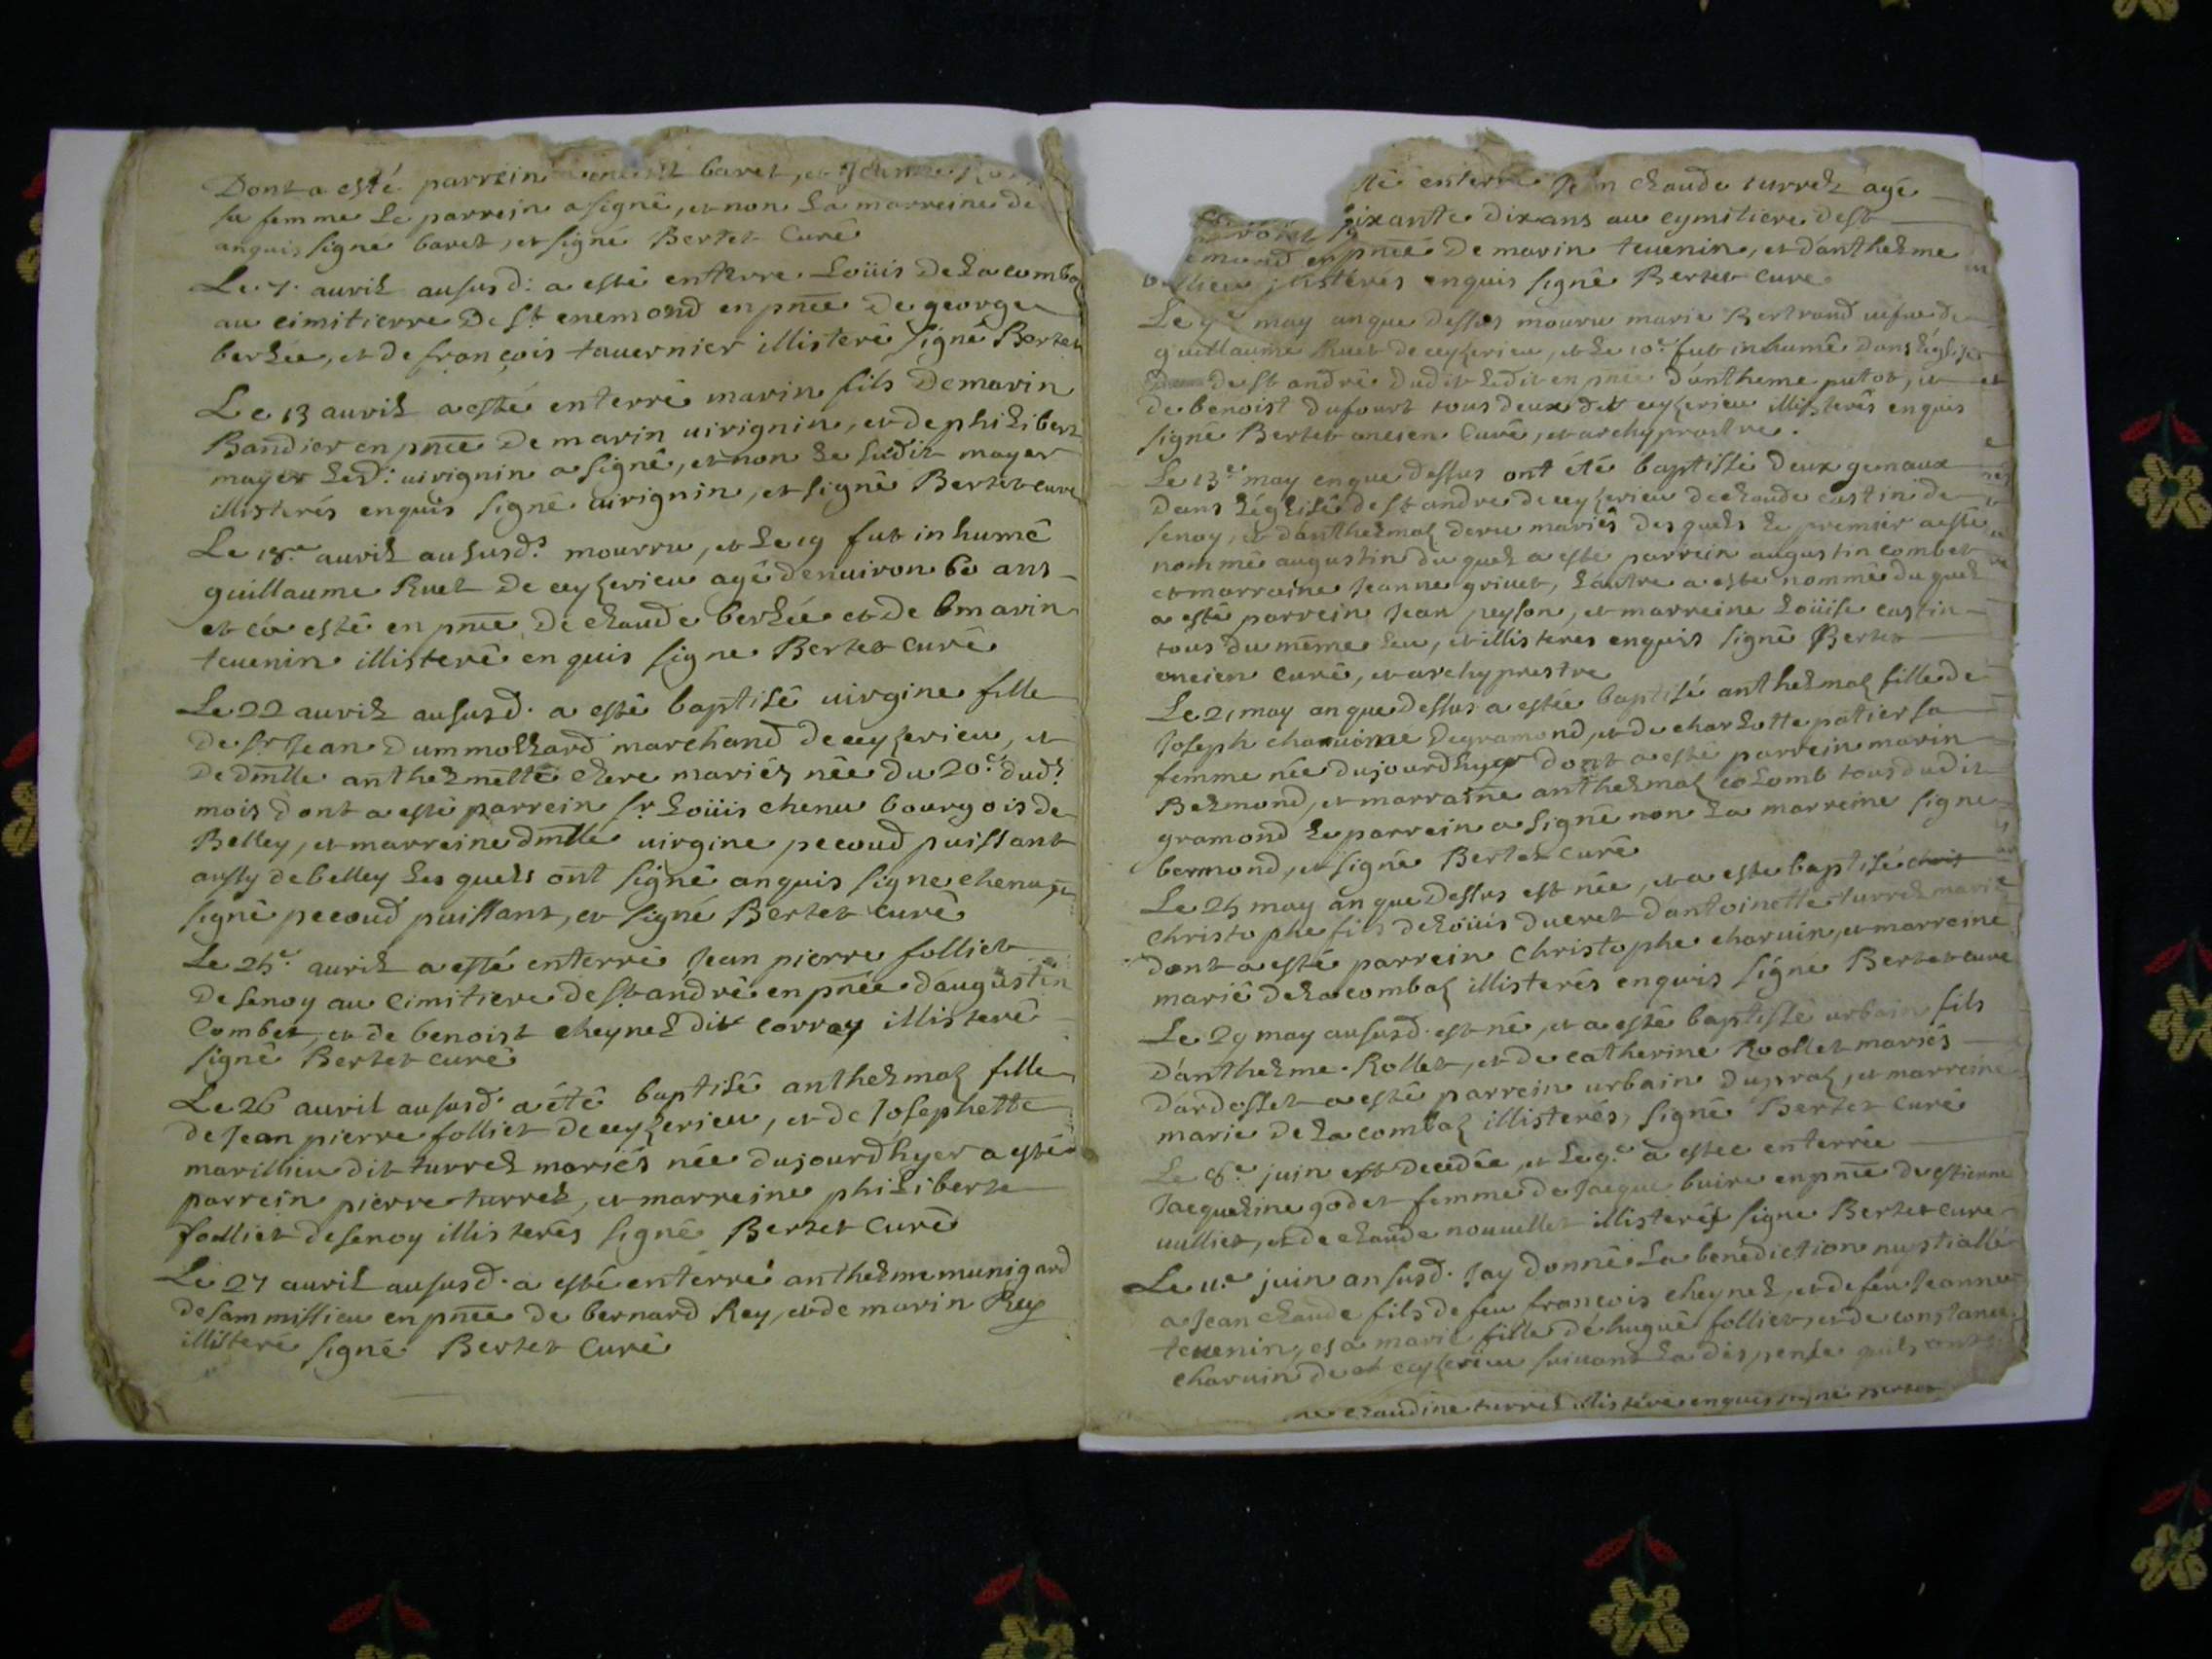 Dont a esté parrein baret, et Jeanne
sa femme Le parrein a signé, et non La marreine de
anquis signé baret, et signé Bertet Curé
Le 7. auril aususd: a esté enterre Loüis De Lacomba
au cimitierre De St. enemond en pnce De george
berlie, et de françois tauernier illisteré signé Bertet
Le 13 auril a esté enterré marin fils De marin
Bandier en pnce De marin uirignin, et de philibert
mayer Led: uirignin a signé, et non Le sudit mayer
illisterés enquis signé uirignin, et signé Bertet cure
Le 18.e auril aususd: mourru, et Le 19 fut inhumé
guillaume Ruet De ceyzerieu agé denuiron 60 ans
et ca esté en pnce De claude berlie et de marin
teuenin illisteré enquis signe Bertet curé
Le 22 auril aususd. a esté baptisé uirgine fille
de Sr Jean Dummollard marchand de ceyzerieu, et
De dmlle anthelmette clere mariéz née du 20.e dud:
mois dont a esté parrein Sr. Loüis chenu bourgois de
Belley, et marreine dmlle uirgine pecoud puissant
aussy de belley Les quels ont signé anquis signe chenu,
signé pecoud puissant, et signé Bertet curé
Le 25.e auril a esté enterré Jean pierre folliet
De senoy au cimitiere de St andré en pnce d'augustin
Combet, et de benoist cheynel dit corray illisteré
signé Bertet curé
Le 26 auril aususd. a été baptisé anthelmaz fille
de Jean pierre folliet de ceyzerieu, et de Josephette
marillieu dit turrel mariés née dujourdhyer a esté
parrein pierre turrel, et marreine philiberte
folliet de senoy illisterés signé Bertet curé
Le 27 auril aususd. a esté enterré anthelme munigard
de sammissieu en pnce de bernard Rey, et de marin Rey
illisteré signé Bertet Curé
sté enterré Jean claude turrel agé
soixante dix ans au cymitiere de St
enemond en pnce De marin teuenin, et d'anthelme
illisterés enquis signé Bertet Cure
Le 9.e may anque dessus mouru marie Bertrand uefue de
guillaume Ruet de ceyzerieu, et Le 10.e fut inhumé dans Léglise
de St andré dudit Ledit en pnce d'antheme putot, et
de benoist dufourt tous deux dud ceyzerieu illisterés enquis
signé Bertet ancien Curé, et archyprestre.
Le 13.e may enque dessus ont été baptissé deux gemaux
Dans Léglise de St andre de ceyzerieu de claude castin de
senoy, et d'anthelmaz deru mariés des quels Le premier a esté
nommé augustin du quel a esté parrein augustin combet
et marraine Jeanne griuet, L'autre a esté nommé du quel
a esté parrein Jean peyson, et marreine Loüise castin
tous du même Lieu, et illisteres enquis signé Bertet
ancien curé, et archyprestre
Le 21 may an que dessus a estée baptisé anthelmaz fille de
Joseph chanuoine Degramond, et de charlotte potier sa
femme née dujourdhyer dont a esté parrein marin
Belmond, et marraine anthelmaz colomb tous dudit
gramond Le parrein a signé non La marreine signe
bermond, et signé Bertet curé
Le 25 may an que dessus est née, et a esté baptisé
Christophe fils de Loüis ducret d'antoinette turrel mariéz
dont a esté parrein Christophe charuin, et marreine
marie de Lacombaz illisterés enquis signé Bertet cure
Le 29 may aususd. est né, et a esté baptissé urbain fils
D'anthelme Rollet, et de catherine Roollet mariés
d'ardosset a esté parrein urbain dupraz, et marreine
marie de Lacombaz illisterés, signé Bertet curé
Le 8.e juin est decedée, et Le 9.e a estee enterrée
Jacqueline godet femme de Jacque buire en pnce de estienne
uulliet, et de claude nouuellet illisterés signe Bertet cure
Le 11.e juin an susd. Jay donné La benediction nuptiallé
a Jean claude fils de feu françois cheynel, et de feu Jeanne
teuenin, et a marie fille de hugue folliet, et de constance
charuin de ceyzerieu suiuant La dispense quils ont
claudine turrel illisteré enquis signé Bertet